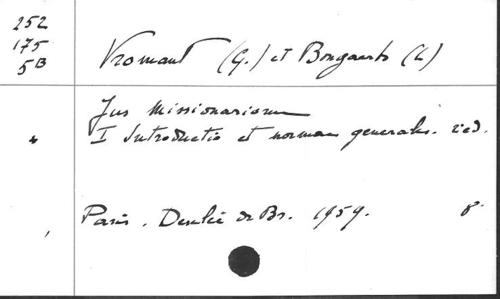 252
175
5B
Vromant (G.) et Bongaerts (L)
Jus Missionariorum
I Introductio et normae generales. 2 ed.
Paris. Desclée de Br. 1959. 8°